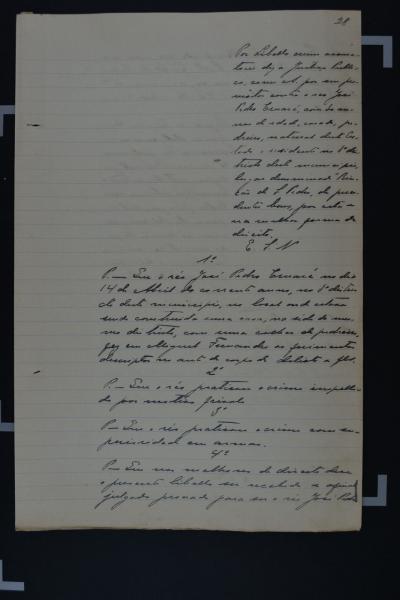 28
Por libello crime accusa-
torio diz a Justiça Publi-
ca, como A. por seu pro-
motor contra o réo José
Pedro
nos de idade, casado, pe-
dreiro, natural deste Es-
tado e residente no 8º dis-
tricto deste municipio,
de S. Pedro, de
por esta e
na melhor forma de
direito.
E. S. N.
1º
P. — Que o réo José Pedro no dia
14 de Abril do corrente anno, no 8º distri-
cto deste municipio, no local onde estava
sendo construida uma casa, na séde do mes-
mo districto, com uma colher de pedreiro,
fez em Miguel Fernandes os ferimentos
descriptos no auto de corpo de delicto a fls.
2º
P. — Que o réo praticou o crime impelli-
do por motivo frivolo.
3º
P — Que o réo praticou o crime com su-
perioridade em armas.
4º
P. — Que nos melhores de direito deve
o presente libello ser recebido e afinal
julgado provado para ser o réo José Pedro